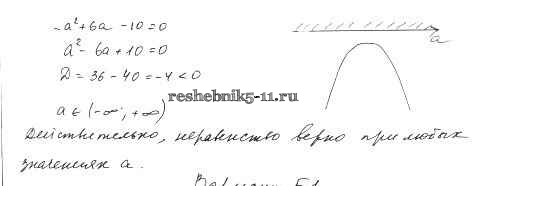 -a²+6a-10=0
a²-6a+10=0
D=36-40=-4<0
a
a∈(-∞;+∞)
reshebnik5-11.ru
Действительно, неравенство верно при любых
значениях a.